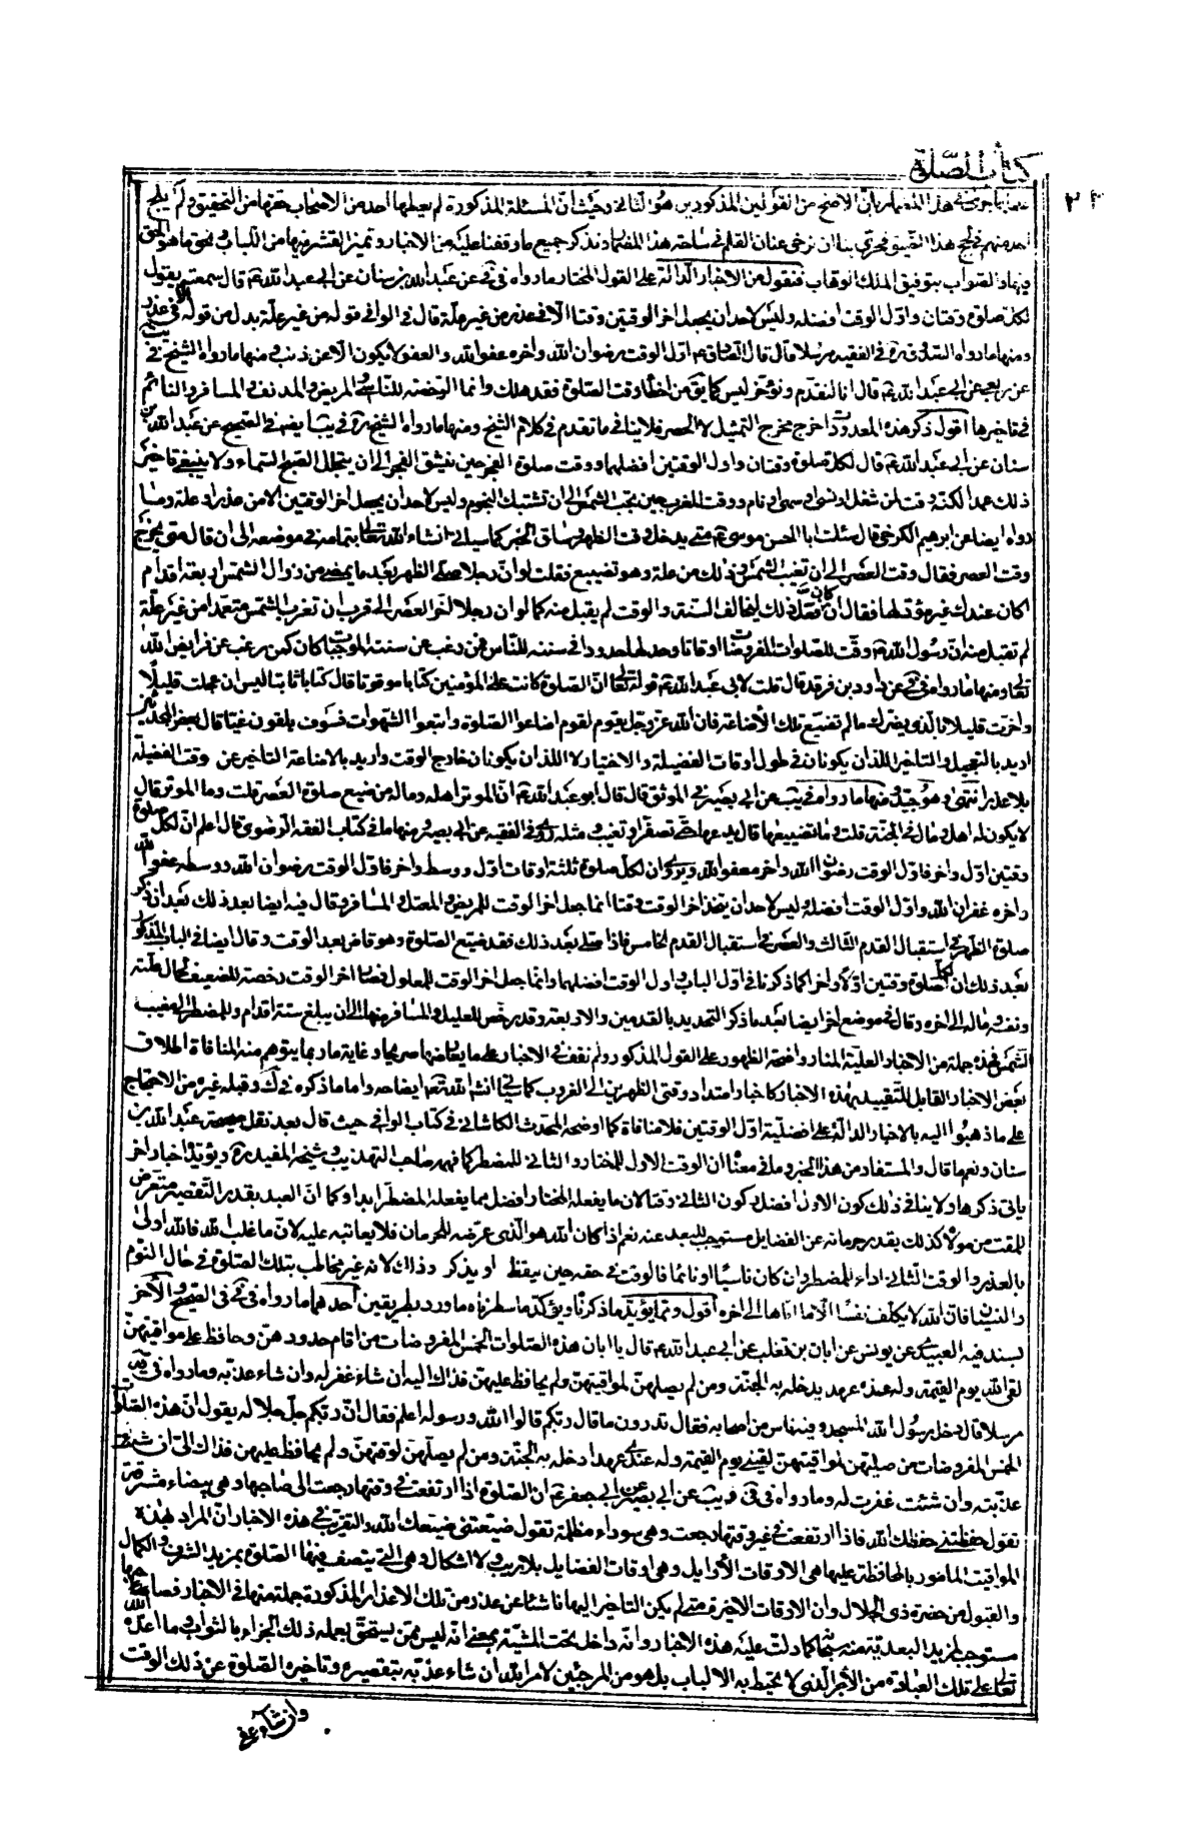 كتاب الصلوة
٢٣
الاصح من القولين المذكورين هو الثاني وحيث ان المسئلة المذكورة لم يعطها احد من الاصحاب حقها من التحقيق ولم يلج
احد منهم في لجج هذا المضيق فحري بنا ان نرخى عنان القلم في ساحة هذا المقام ونذكر جميع ما وقفنا عليه من الاخبار ونميز القشر فيها من اللباب ونحق ما هو الحق
فيها والصواب بتوفيق الملك الوهاب فنقول من الاخبار الدالة على القول المختار ما رواه في في عن عبد الله بن سنان عن ابي عبد الله ع قال سمعته يقول
لكل صلوة وقتان واول الوقت افضله وليس لاحد ان يجعل اخر الوقتين وقتا الا في عذر من غير علة قال في الوافي قوله من غير علة بدل من قوله الا في عذر
ومنها ما رواه الصدوق ره في الفقيه مرسلا قال قال الصادق ع اول الوقت رضوان الله واخره عفو الله والعفو لا يكون الا عن ذنب ومنها ما رواه الشيخ في يب
عن ربعي عن ابي عبد الله ع قال انا لنقدم ونؤخر ليس كما يق من اخطأ وقت الصلوة فقد هلك وانما الرخصة للناسي والمريض والمدنف والمسافر والنائم
في تاخيرها اقول ذكر هذه المعدودات خرج مخرج التمثيل لا الحصر فلا ينافي ما تقدم في كلام الشيخ ومنها ما رواه الشيخ ره في يب ايضا في الصحيح عن عبد الله بن
سنان عن ابي عبد الله ع قال لكل صلوة وقتان واول الوقتين افضلهما ووقت صلوة الفجر حين ينشق الفجر الى ان يتجلل الصبح السماء ولا ينبغي تاخير
ذلك عمدا لكنه وقت لمن شغل او نسى او سهى او نام ووقت المغرب حين تجب الشمس الى ان تشتبك النجوم وليس لاحد ان يجعل اخر الوقتين الا من عذر او علة وما
رواه ايضا عن ابرهيم الكرخي قال سئلت ابا الحسن موسى ع متى يدخل وقت الظهر وساق الخبر كما سياتي انشاء الله تعالى بتمامه في موضعه الى ان قال متى يخرج
وقت العصر فقال وقت العصر الى ان تغرب الشمس وذلك من علة وهو تضييع فقلت لو ان رجلا صلى الظهر بعد ما يمضي من زوال الشمس اربعة اقدام
اكان عندك غير مؤد لها فقال ان كان تعمد ذلك ليخالف السنة والوقت لم يقبل منه كما لو ان رجلا اخر العصر الى قرب ان تغرب الشمس متعمدا من غير علة
لم تقبل منه ان رسول الله ص وقت للصلوات المفروضات اوقاتا وحد لها حدودا في سننه للناس فمن رغب عن سنة من سننه الموجبات كان كمن رغب عن فرايض الله
تعالى ومنها ما رواه في في عن داود بن فرقد قال قلت لابي عبد الله ع قوله تعالى ان الصلوة كانت على المؤمنين كتابا موقوتا قال كتابا ثابتا وليس ان عجلت قليلا
واخرت قليلا بالذي يضرك ما لم تضيع تلك الاضاعة فان الله عز وجل يقول لقوم اضاعوا الصلوة واتبعوا الشهوات فسوف يلقون غيا قال بعض المحدثين
اريد بالتعجيل والتاخير اللذان يكونان في طول اوقات الفضيلة والاختيار لا اللذان يكونان خارج الوقت واريد بالاضاعة التاخير عن وقت الفضيلة
بلا عذر انتهى وهو جيد ومنها ما رواه في يب عن ابي بصير في الموثق قال قال ابو عبد الله ع ان الموتور اهله وماله من ضيع صلوة العصر قلت وما الموتور قال
لا يكون له اهل ولا مال في الجنة قلت وما تضييعها قال يدعها حتى تصفر او تغيب ومثله روى في الفقيه عن ابي بصير ومنها ما في كتاب الفقه الرضوي قال اعلم ان لكل صلوة
وقتين اول واخر فاول الوقت رضوان الله واخره عفو الله ويروى ان لكل صلوة ثلثة اوقات اول ووسط واخر فاول الوقت رضوان الله ووسطه عفو الله
واخره غفران الله واول الوقت افضله وليس لاحد ان يتخذ اخر الوقت وقتا انما جعل اخر الوقت للمريض والمعتل والمسافر وقال فيه ايضا بعد ذلك بعد ان ذكر
صلوة الظهر في استقبال القدم الثالث والعصر في استقبال القدم الخامس فاذا صلى بعد ذلك فقد ضيع الصلوة وهو قاض بعد الوقت وقال ايضا في الباب المذكور
بعد ذلك ان لكل صلوة وقتين اولا واخرا كما ذكرنا في اول الباب واول الوقت افضلهما وانما جعل اخر الوقت للمعلول فصار اخر الوقت رخصة للضعيف لحال علته
ونفسه وماله الى اخره وقال في موضع اخر ايضا بعد ما ذكر التحديد بالقدمين والاربعة وقد رخص للعليل والمسافر منها الى ان يبلغ ستة اقدام وللمضطر الى مغيب
الشمس فهذه جملة من الاخبار العلية المنار واضحة الظهور على القول المذكور ولم نقف في الاخبار على ما يعارضها صريحا وغاية ما ربما يتوهم منه المنافاة اطلاق
بعض الاخبار القابل للتقييد بهذه الاخبار كاخبار امتداد وقتي الظهرين الى الغروب كما سياتي انشاء الله تعالى ايضاحه واما ما ذكره في ك وقبله غيره من الاحتجاج
على ما ذهبوا اليه بالاخبار الدالة على افضلية اول الوقتين فلا منافاة كما اوضحه المحدث الكاشاني في كتاب الوافي حيث قال بعد نقل صحيحة عبد الله بن
سنان ونعم ما قال والمستفاد من هذا الخبر وما في معناه ان الوقت الاول للمختار والثاني للمضطر كما فهمه صاحب التهذيب وشيخه المفيد ره ويؤيده اخبار اخر
ياتي ذكرها ولا ينافي ذلك كون الاول افضل وكون الثاني وقتا لان ما يفعله المختار افضل مما يفعله المضطر ابدا وكما ان العبد بقدر التقصير متعرض
للمقت من مولاه كذلك بقدر حرمانه عن الفضايل مستوجب للبعد عنه نعم اذا كان الله هو الذي عرضه للحرمان فلا يعاتبه عليه لان ما غلب الله فالله اولى
بالعذر والوقت الثاني اداء للمضطر وان كان ناسيا او نائما فالوقت في حقه حين يتيقظ او يذكر وذاك لانه غير مخاطب بتلك الصلوة في حال النوم
والنسيان فان الله لا يكلف نفسا الا ما اتاها الى اخره اقول ومما يؤيد ما ذكرناه ويؤكد ما سطرناه ما ورد بطريقين احدهما ما رواه في في في الصحيح والآخر
بسند فيه العبيدي عن يونس عن ابان بن تغلب عن ابي عبد الله ع قال يا ابان هذه الصلوات الخمس المفروضات من اقام حدودهن وحافظ على مواقيتهن
لقى الله يوم القيمة وله عنده عهد يدخله به الجنة ومن لم يصلهن لمواقيتهن ولم يحافظ عليهن فذاك اليه ان شاء غفر له وان شاء عذبه وما رواه في فيه
مرسلا قال دخل رسول الله المسجد وفيه ناس من اصحابه فقال تدرون ما قال ربكم قالوا الله ورسوله اعلم فقال ان ربكم جل جلاله يقول ان هذه الصلوات
الخمس المفروضات من صليهن لمواقيتهن لقيني يوم القيمة وله عندي عهد ادخله به الجنة ومن لم يصلهن لوقتهن ولم يحافظ عليهن فذاك الي ان شئت
عذبته وان شئت غفرت له وما رواه في في ويب عن ابي بصير عن ابي جعفر ع ان الصلوة اذا ارتفعت في وقتها رجعت الى صاحبها وهي بيضاء مشرقة
تقول حفظتني حفظك الله فاذا ارتفعت في غير وقتها رجعت وهي سوداء مظلمة تقول ضيعتني ضيعك الله والتقريب في هذه الاخبار ان المراد بهذه
المواقيت المأمور بالمحافظة عليها هي الاوقات الأوايل وهي اوقات الفضايل بلا ريب ولا اشكال وهي التي تتصف فيها الصلوة بمزيد الشرف والكمال
والقبول من حضرة ذي الجلال وان الاوقات الاخيرة متى لم يكن التاخير اليها ناشئا عن عذر من تلك الاعذار المذكورة جملة منها في الاخبار فصاحبها
مستوجب لمزيد البعد منه سبحانه كما دلت عليه هذه الاخبار وانه داخل تحت المشية بمعنى انه ليس ممن يستحق بعمله ذلك الجزاء بالثواب وما اعده الله
تعالى على تلك العبادة من الأجر الذي لا يحيط به الالباب بل هو من المرجئين لامر الله ان شاء عذبه بتقصيره وتاخيره الصلوة عن ذلك الوقت
وان شاء عفى